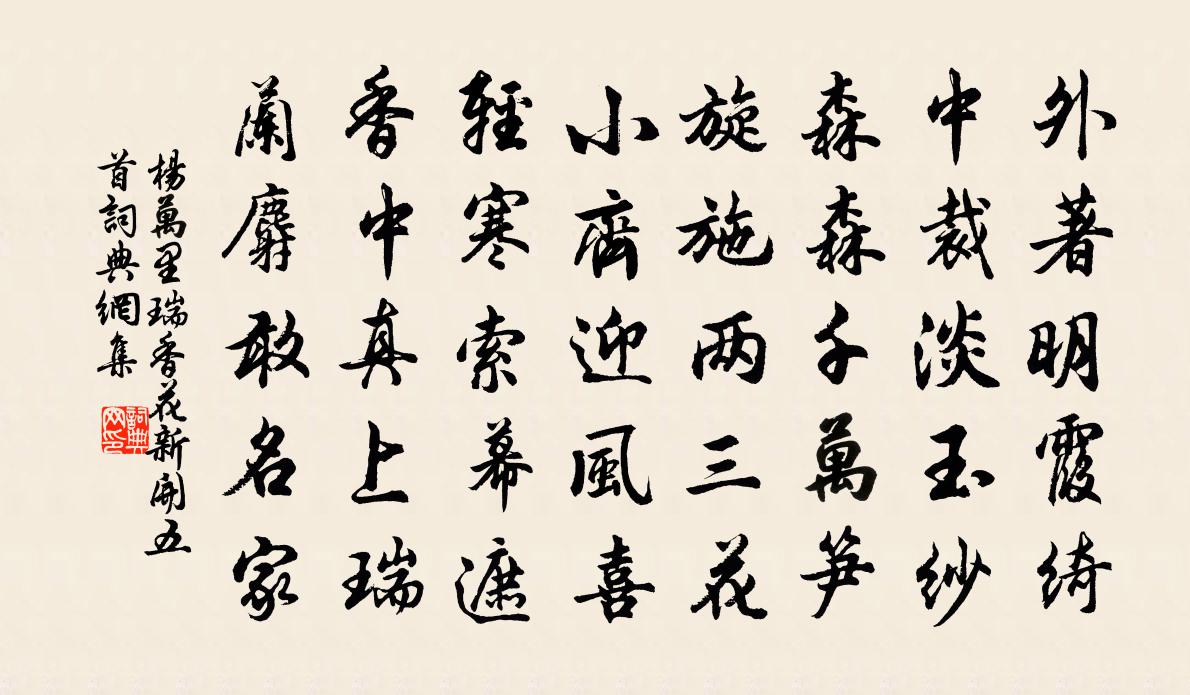 外著明霞綺
中裁淡玉紗
森森千萬笋
旋施两三花
小齊迎風喜
輕寒索幕遮
香中真上瑞
蘭麝敢名家
楊萬里瑞香花新開五
首詞典網集
詞典
网印